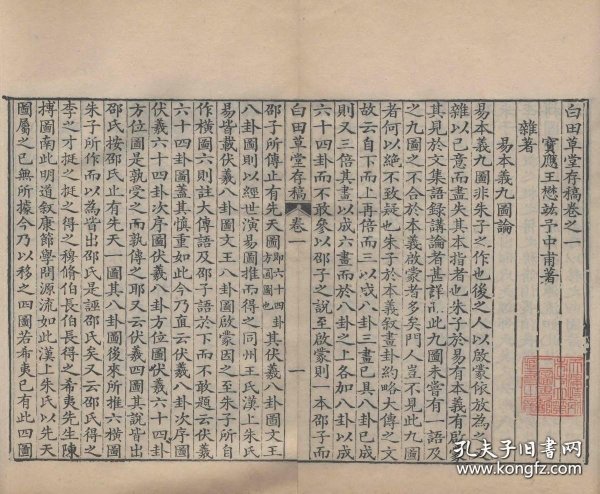 白田草堂存稿卷之一
寶應王懋竑予中甫著
雜著
易本義九圖論
易本義九圖非朱子之作也後之人以啟蒙依放為之又
雜以已意而盡失其本指者也朱子於易有本義有啟蒙
其見於文集語録講論者甚詳而此九圖未嘗有一語及
之九圖之不合於本義啟蒙者多矣門人豈不見此九圖
者何以絶不致疑也朱子於本義叙畫卦約略大傳之文
故云自下而上再倍而三以成八卦三畫已具八卦已成
則又三倍其畫以成六畫而於八卦之上各加八卦以成
六十四卦而不敢參以邵子之說至啟蒙則一本邵子而
白田草堂存稿
卷一
一
邵子所傳止有先天圖即六十四卦方圓圖也其伏羲八卦圖文王
八卦圖則以經世演易圖推而得之同州王氏漢上朱氏
易皆載伏羲八卦圖文王八卦圖啟蒙因之至朱子所自
作橫圖六則註大傳語及邵子語於下而不敢題云伏羲
六十四卦圖蓋其慎重如此今乃直云伏羲八卦次序圖
伏羲六十四卦次序圖伏羲八卦方位圖伏羲六十四卦
方位圖是孰受之而孰傳之耶又云伏羲四圖其說皆出
邵氏按邵氏止有先天一圖其八卦圖後來所推六橫圖
朱子所作而以為皆出邵氏是誣邵氏矣又云邵氏得之
李之才挺之挺之得之穆脩伯長伯長得之希夷先生陳
摶圖南此明道叙康節學問源流如此漢上朱氏以先天
圖屬之已無所據今乃以移之四圖若希夷已有此四圖
孔夫子旧书网
www.kongfz.com